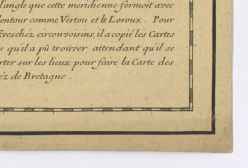 langle que cette meridienne formoit avec
lentour comme Vertou et le Loroux. Pour
Evechéz circonvoisins, il a copié les Cartes
s qu'il a pû trouver, attendant qu'il se
rter sur les lieux pour faire la Carte des
éz de Bretagne.